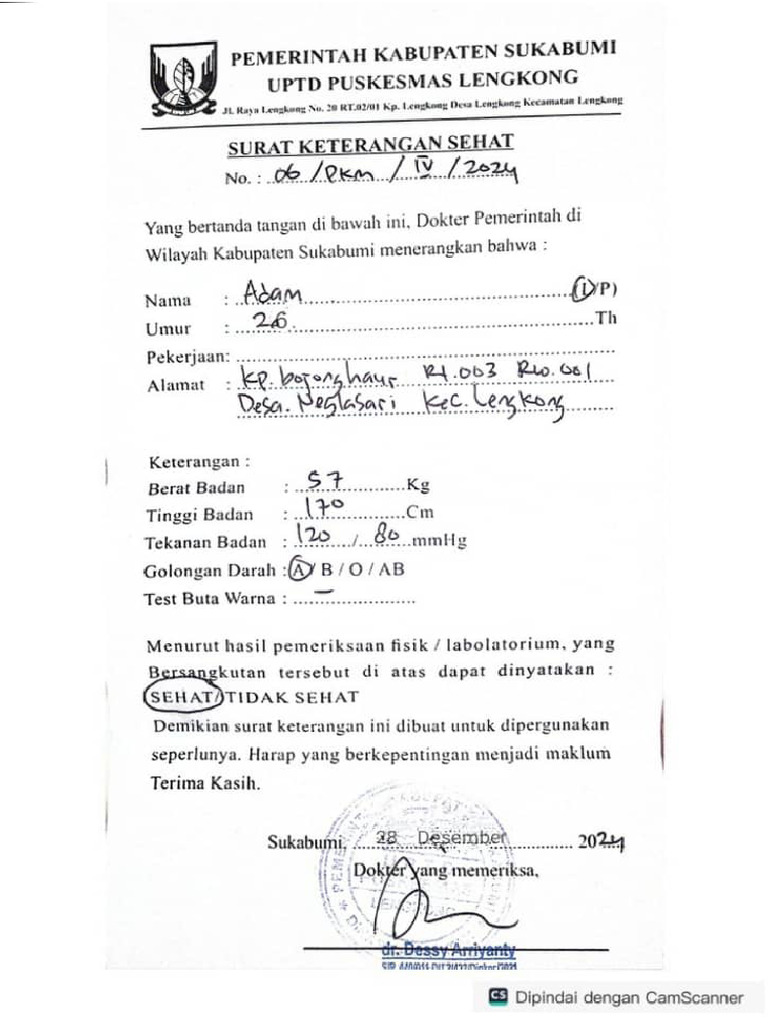 PEMERINTAH KABUPATEN SUKABUMI
UPTD PUSKESMAS LENGKONG
Jl. Raya Lengkong No. 20 RT.02/01 Kp. Lengkong Desa Lengkong Kecamatan Lengkong
SURAT KETERANGAN SEHAT
No. : 06 /PKM / IV / 2024
Yang bertanda tangan di bawah ini, Dokter Pemerintah di
Wilayah Kabupaten Sukabumi menerangkan bahwa :
Nama : Adam (L/P)
Umur : 26 Th
Pekerjaan:
Alamat : Kp. bojonghaur Rt.003 Rw.001
Desa. Neglasari Kec. Lengkong
Keterangan :
Berat Badan : 57 Kg
Tinggi Badan : 170 Cm
Tekanan Badan : 120 / 80 mmHg
Golongan Darah : A / B / O / AB
Test Buta Warna : -
Menurut hasil pemeriksaan fisik / labolatorium, yang
Bersangkutan tersebut di atas dapat dinyatakan :
SEHAT/TIDAK SEHAT
Demikian surat keterangan ini dibuat untuk dipergunakan
seperlunya. Harap yang berkepentingan menjadi maklum
Terima Kasih.
Sukabumi, 28 Desember 2024
Dokter yang memeriksa,
dr. Dessy Arriyanty
CS Dipindai dengan CamScanner